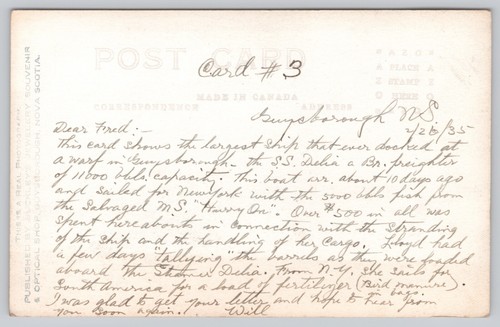 POST CARD
Card #3
MADE IN CANADA
CORRESPONDENCE
ADDRESS
PLACE
STAMP
HERE
Guysborough NS
2/26/35
Dear Fred:-
This card shows the largest ship that ever docked at
a warf in Guysborough. the S.S. Delia a Br. freighter
of 11000 bbls. capacity. This boat arr. about 10 days ago
and sailed for New York with the 5000 bbls fish from
the Salvaged M.S. "Hurry On". Over $500 in all was
spent here abouts in connection with the stranding
of the ship and the handling of her cargo. Lloyd had
a few days "tallying" the barrels as they were loaded
aboard the Steamer Delia. From N.Y. she sails for
South America for a load of fertilizer (Bird manure)
in bags.
I was glad to get your letter and hope to hear from
you soon again. Will
PUBLISHED
SOUVENIR
& OPTICAL SHOP
NOVA SCOTIA.